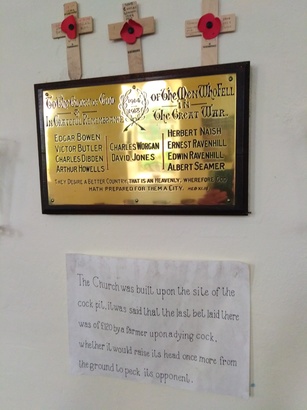 To The Honour of God of The Men Who Fell
& IN
In Grateful Remembrance The Great War.
EDGAR BOWEN
VICTOR BUTLER
CHARLES DIBDEN
ARTHUR HOWELLS
CHARLES MORGAN
DAVID JONES
HERBERT NAISH
ERNEST RAVENHILL
EDWIN RAVENHILL
ALBERT SEAMER
THEY DESIRE A BETTER COUNTRY, THAT IS AN HEAVENLY, WHEREFORE GOD
HATH PREPARED FOR THEM A CITY.
The Church was built, upon the site of the
cock pit, it was said that the last bet laid there
was of £120 by a farmer upon a dying cock,
whether it would raise its head once more from
the ground to peck its opponent.